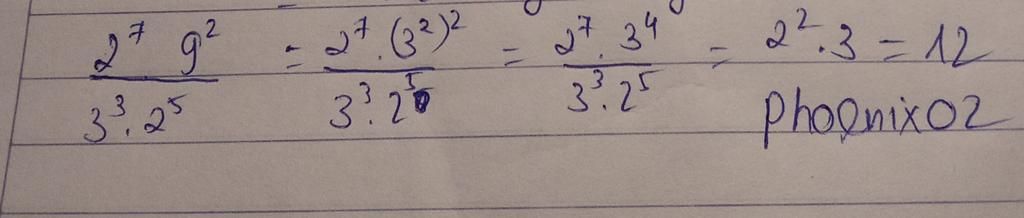 2⁷ 9² / 3³ · 2⁵ = 2⁷ · (3²)² / 3³ · 2⁵ = 2⁷ · 3⁴ / 3³ · 2⁵ = 2² · 3 = 12
Phoenix02